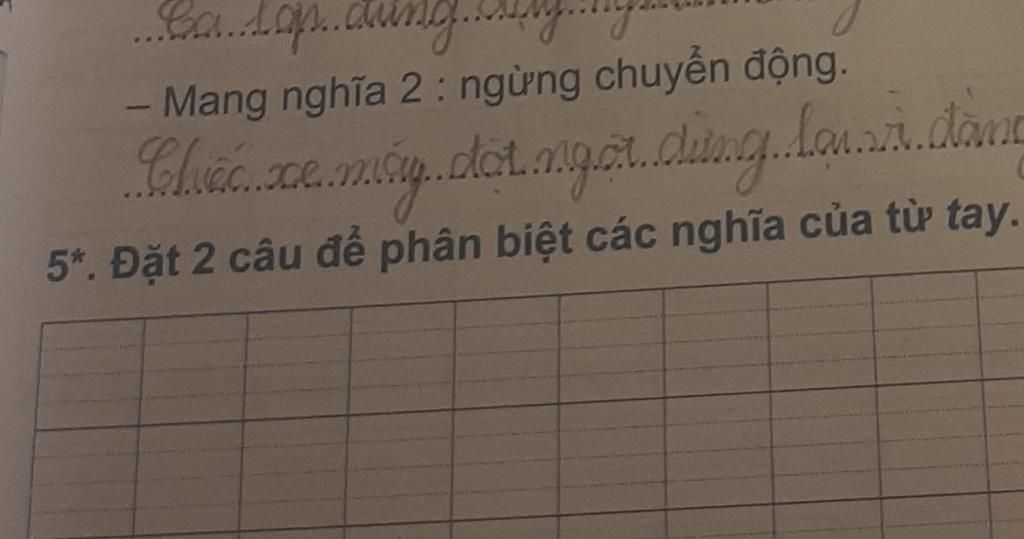 Cả lớp đứng dậy
– Mang nghĩa 2 : ngừng chuyển động.
Chiếc xe máy đột ngột dừng lại vì đằng
5*. Đặt 2 câu để phân biệt các nghĩa của từ tay.